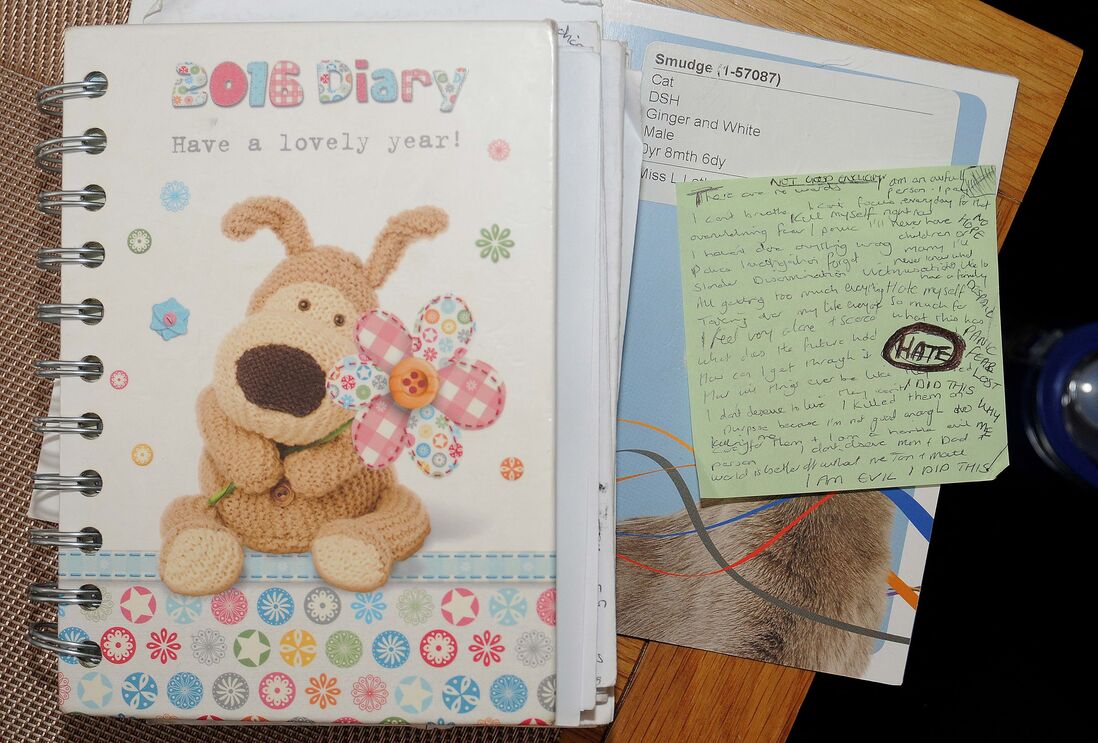 2016 Diary
Have a lovely year!
Smudge (1-57087)
Cat
DSH
Ginger and White
Male
0yr 8mth 6dy
Miss L
NOT GOOD ENOUGH
There are no words
I am an awful person
I can't breathe I can't focus
overwhelming fear/panic
kill myself right now
I'll never have children or
NO HOPE
I haven't done anything wrong
Police investigation forget
Slander Discrimination
All getting too much everything
Hate myself
Taking over my life everyday
so much for
I feel very alone + scared
what this has
What does the future hold
How can I get through it
HATE
DESPAIR
PANIC
FEAR
LOST
How will things ever be like
I DID THIS
WHY ME
I don't deserve to live I killed them on
purpose because I'm not good enough to
care for them + I am a horrible evil
person I don't deserve Mum + Dad
world is better off without me
I AM EVIL I DID THIS